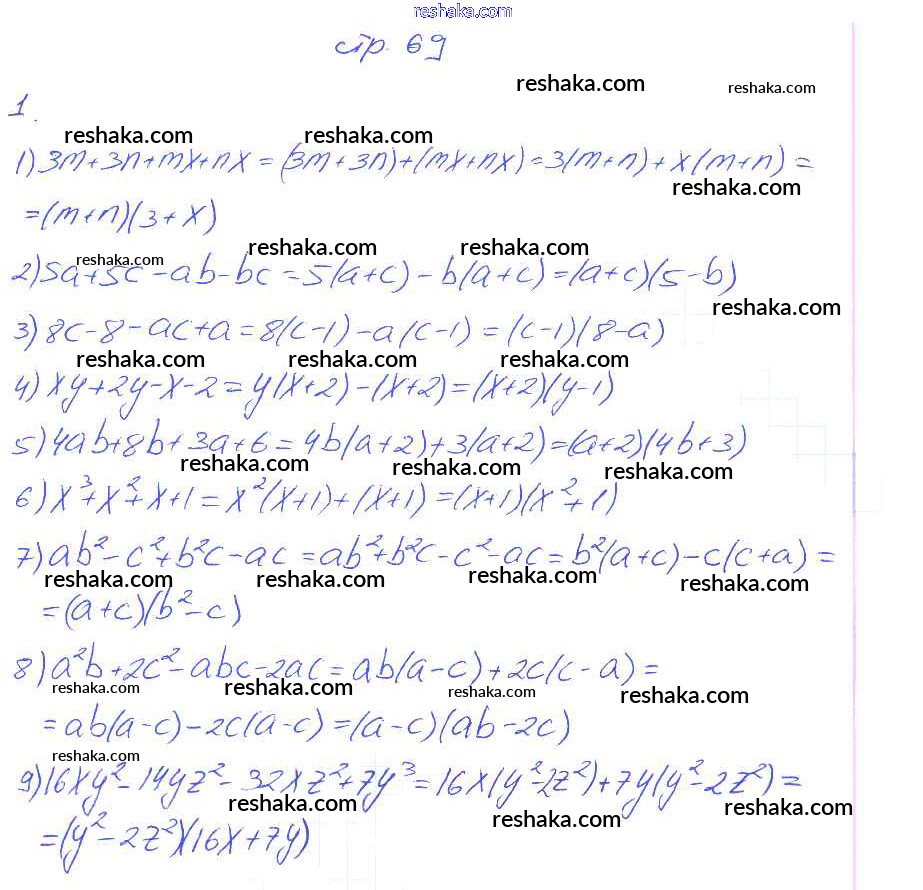 reshaka.com
стр. 69
reshaka.com reshaka.com
1.
reshaka.com reshaka.com
1) 3m+3n+mx+nx = (3m+3n)+(mx+nx) = 3(m+n)+x(m+n) =
reshaka.com
=(m+n)(3+x)
reshaka.com reshaka.com reshaka.com
2) 5a+5c-ab-bc = 5(a+c)-b(a+c) = (a+c)(5-b)
reshaka.com
3) 8c-8-ac+a = 8(c-1)-a(c-1) = (c-1)(8-a)
reshaka.com reshaka.com reshaka.com
4) xy+2y-x-2 = y(x+2)-(x+2) = (x+2)(y-1)
5) 4ab+8b+3a+6 = 4b(a+2)+3(a+2) = (a+2)(4b+3)
reshaka.com reshaka.com reshaka.com
6) x³+x²+x+1 = x²(x+1)+(x+1) = (x+1)(x²+1)
7) ab²-c²+b²c-ac = ab²+b²c-c²-ac = b²(a+c)-c(c+a) =
reshaka.com reshaka.com reshaka.com reshaka.com
=(a+c)(b²-c)
8) a²b+2c²-abc-2ac = ab(a-c)+2c(c-a) =
reshaka.com reshaka.com reshaka.com reshaka.com
=ab(a-c)-2c(a-c) = (a-c)(ab-2c)
reshaka.com
9) 16xy²-14yz²-32xz²+7y³ = 16x(y²-2z²)+7y(y²-2z²) =
reshaka.com reshaka.com reshaka.com
=(y²-2z²)(16x+7y)